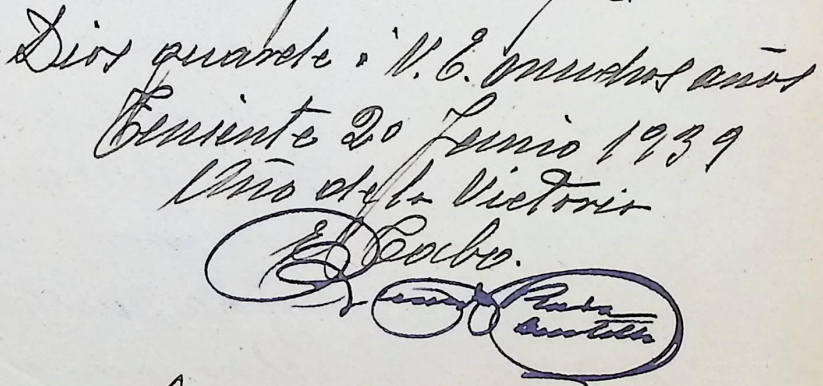 Dios guarde a V.E. muchos años
20 Junio 1939
Año de la Victoria
El Cabo.